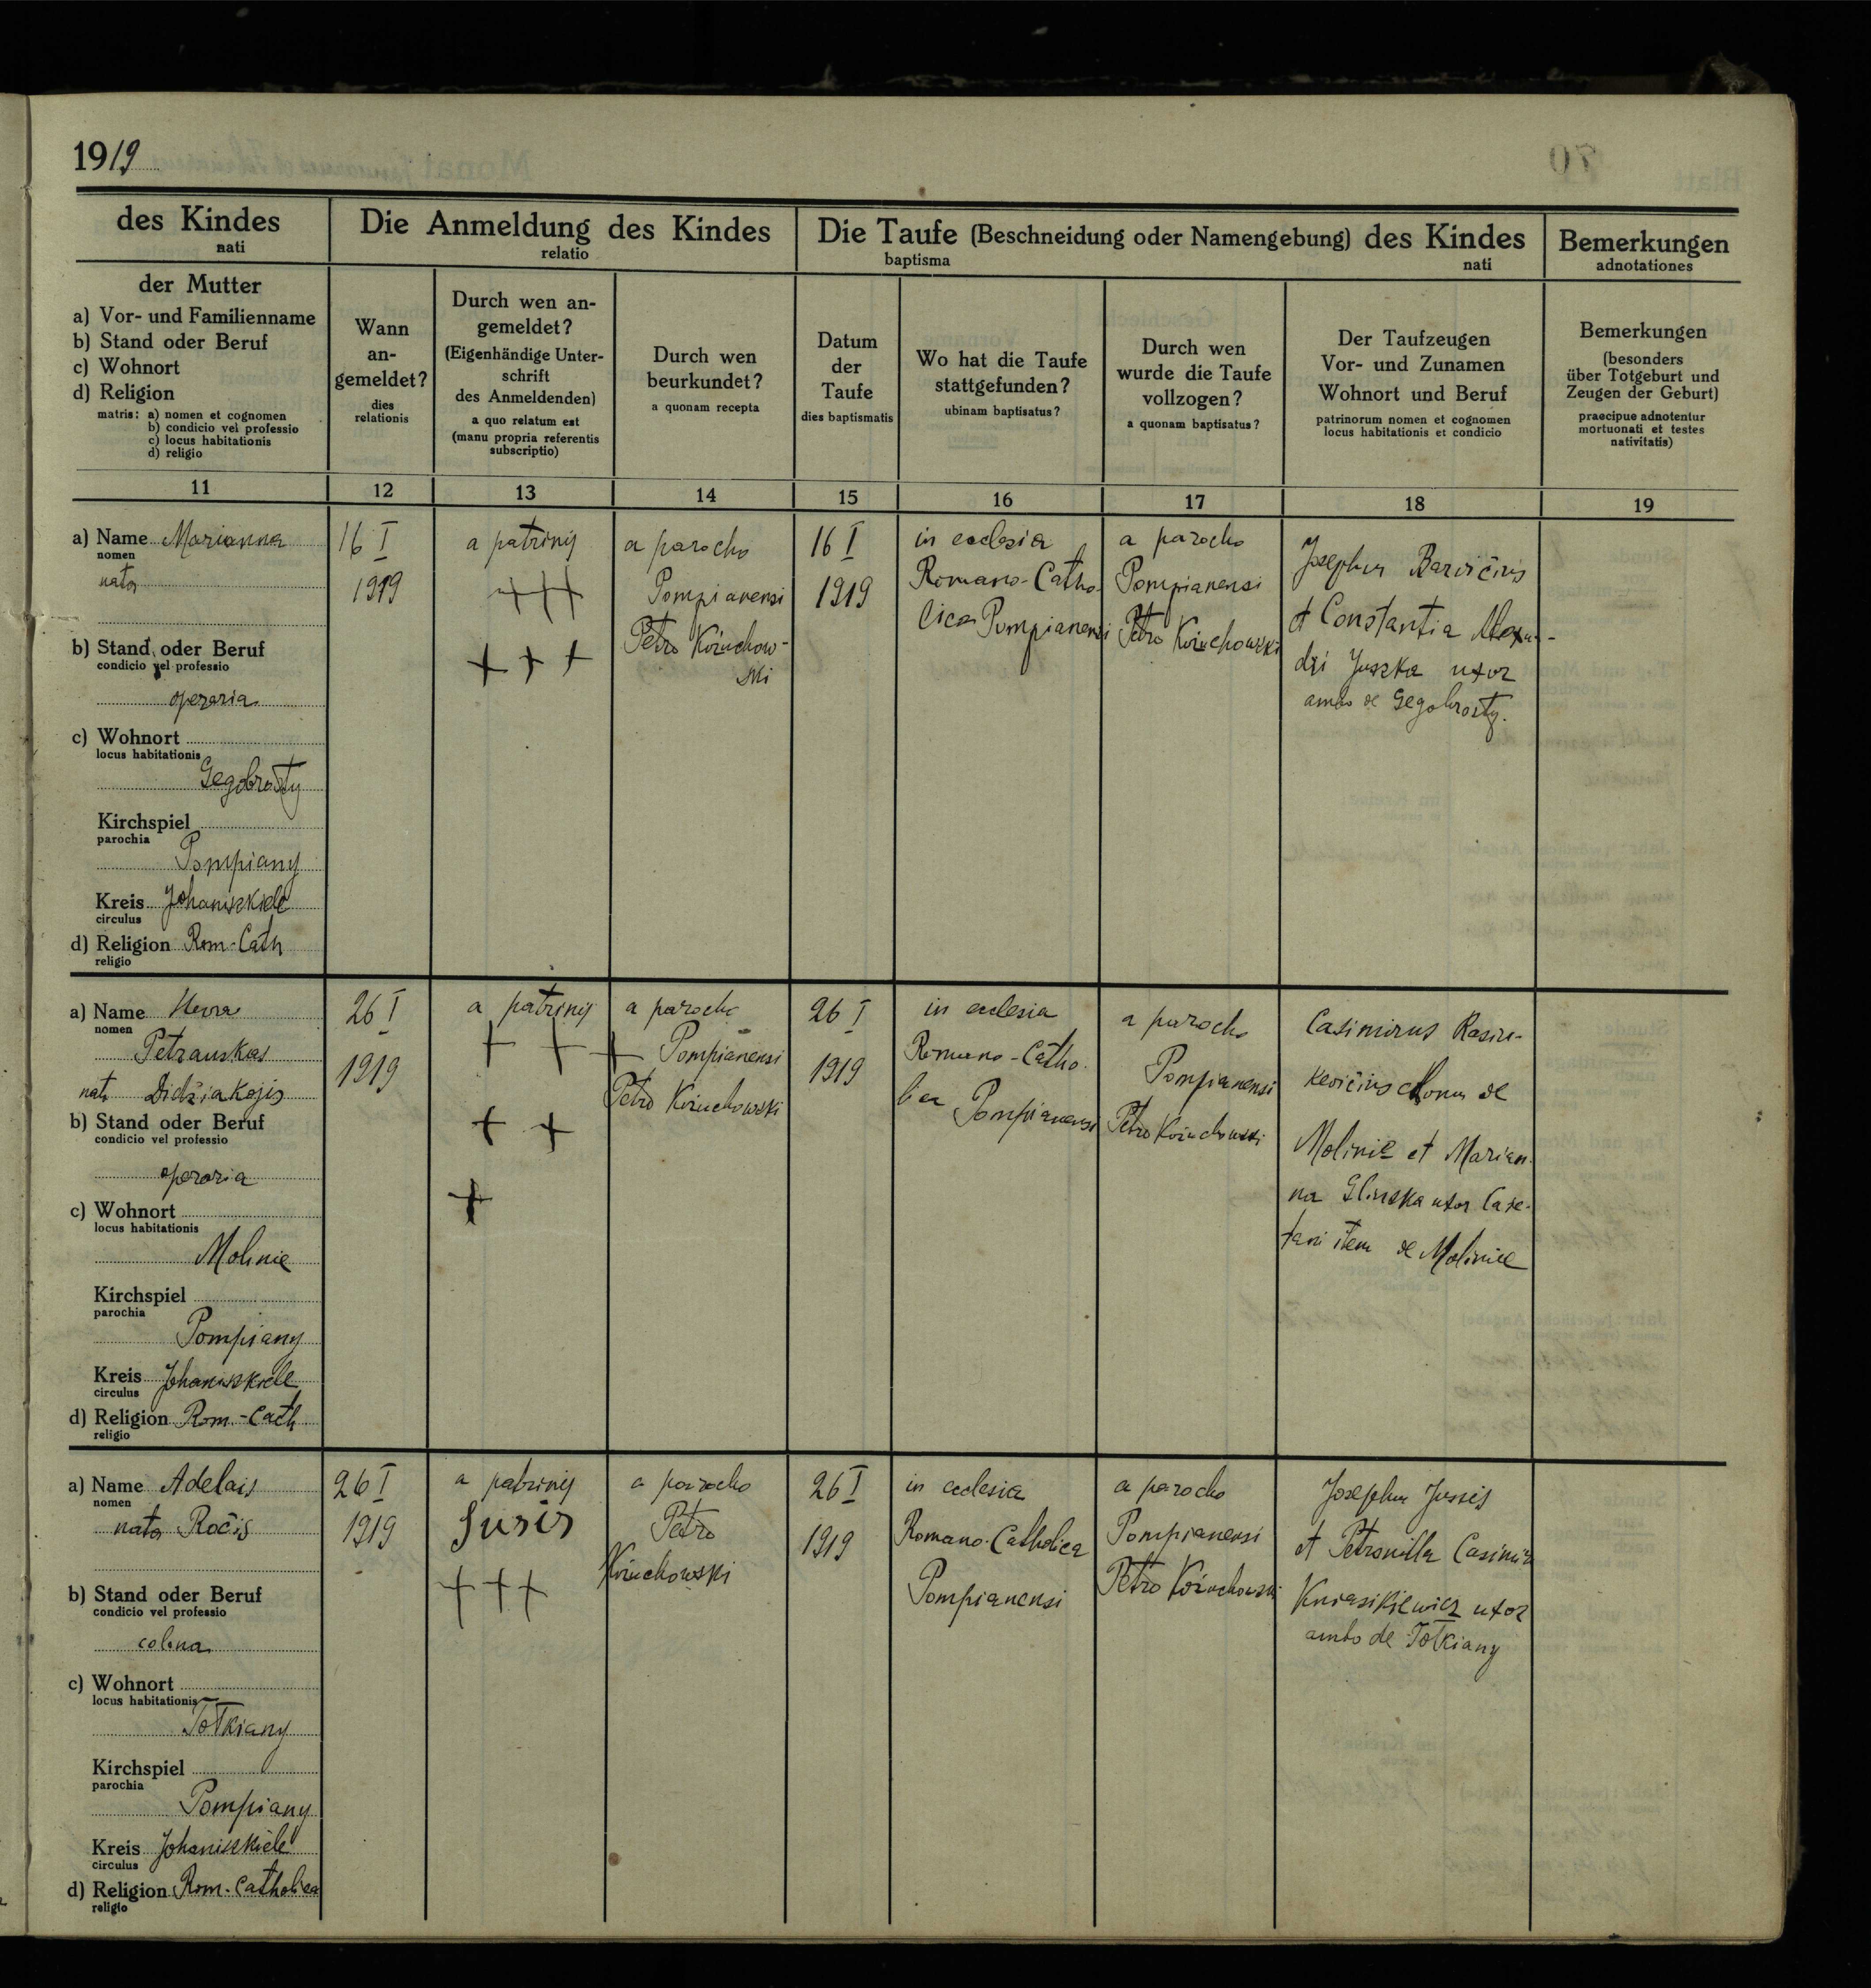 1919
des Kindes
nati
Die Anmeldung des Kindes
relatio
Die Taufe (Beschneidung oder Namengebung) des Kindes
baptisma nati
Bemerkungen
adnotationes
der Mutter
a) Vor- und Familienname
b) Stand oder Beruf
c) Wohnort
d) Religion
matris: a) nomen et cognomen
b) condicio vel professio
c) locus habitationis
d) religio
Wann
an-
gemeldet?
dies
relationis
Durch wen an-
gemeldet?
(Eigenhändige Unter-
schrift
des Anmeldenden)
a quo relatum est
(manu propria referentis
subscriptio)
Durch wen
beurkundet?
a quonam recepta
Datum
der
Taufe
dies baptismatis
Wo hat die Taufe
stattgefunden?
ubinam baptisatus?
Durch wen
wurde die Taufe
vollzogen?
a quonam baptisatus?
Der Taufzeugen
Vor- und Zunamen
Wohnort und Beruf
patrinorum nomen et cognomen
locus habitationis et condicio
Bemerkungen
(besonders
über Totgeburt und
Zeugen der Geburt)
praecipue adnotentur
mortuonati et testes
nativitatis)
11 12 13 14 15 16 17 18 19
a) Name Marianna
nomen
nata
b) Stand oder Beruf
condicio vel professio
operaria
c) Wohnort
locus habitationis
Gegobrosty
Kirchspiel
parochia
Pompiany
Kreis Johaniszkiele
circulus
d) Religion Rom-Cath
religio
16 I
1919
a patrinij
+++
+ + +
a parocho
Pompianensi
Petro Koziuchow-
ski
16 I
1919
in ecclesia
Romano-Catho-
lica Pompianensi
a parocho
Pompianensi
Petro Koziuchowski
Josephus Barvičius
et Constantia
dri Juszka uxor
ambo de Gegobrosty.
a) Name
nomen
Petrauskas
nata Didžiakojis
b) Stand oder Beruf
condicio vel professio
operaria
c) Wohnort
locus habitationis
Molinie
Kirchspiel
parochia
Pompiany
Kreis Johaniszkiele
circulus
d) Religion Rom.-Cath
religio
26 I
1919
a patrinij
+ + +
+ +
+
a parocho
Pompianensi
Petro Koziuchowski
26 I
1919
in ecclesia
Romano-Catho-
lica Pompianensi
a parocho
Pompianensi
Petro Koziuchowski
Casimirus
de
Molinie et Marian-
na Glinska uxor Caje-
tani item de Molinie
a) Name Adelais
nomen
nata Ročis
b) Stand oder Beruf
condicio vel professio
colona
c) Wohnort
locus habitationis
Totkiany
Kirchspiel
parochia
Pompiany
Kreis Johaniszkiele
circulus
d) Religion Rom.-Catholica
religio
26 I
1919
a patrinij
Jusis
+++
a parocho
Petro
Koziuchowski
26 I
1919
in ecclesia
Romano-Catholica
Pompianensi
a parocho
Pompianensi
Petro Koziuchowski
Josephus Jussis
et Petronilla Casimir
Kniasikiewicz uxor
ambo de Totkiany